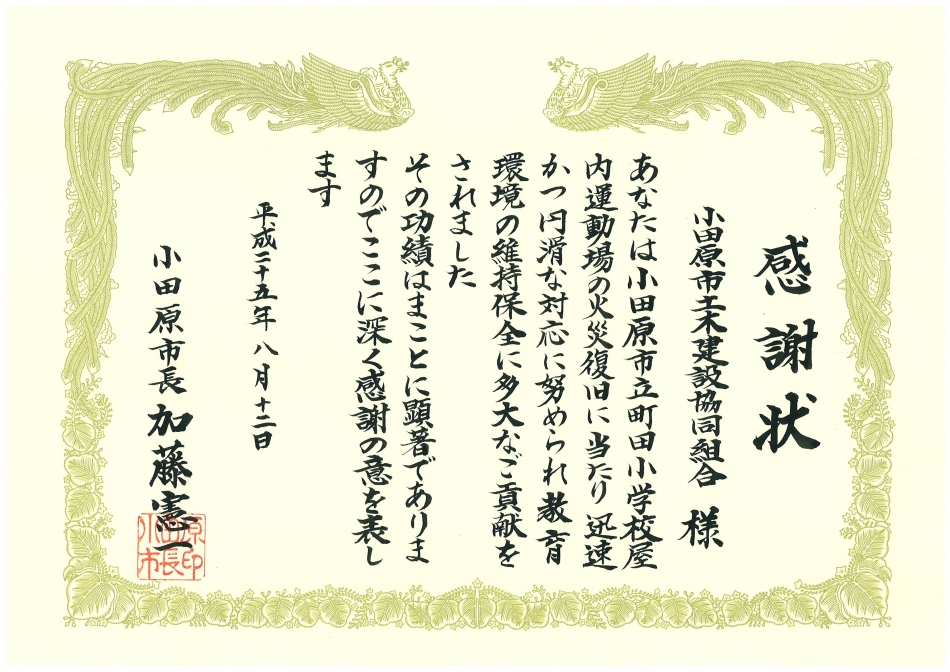 感謝状
小田原市土木建設協同組合 様
あなたは小田原市立町田小学校屋
内運動場の火災復旧に当たり迅速
かつ円滑な対応に努められ教育
環境の維持保全に多大なご貢献を
されました
その功績はまことに顕著でありま
すのでここに深く感謝の意を表し
ます
平成二十五年八月十二日
小田原市長 加藤憲一
小田原市長印